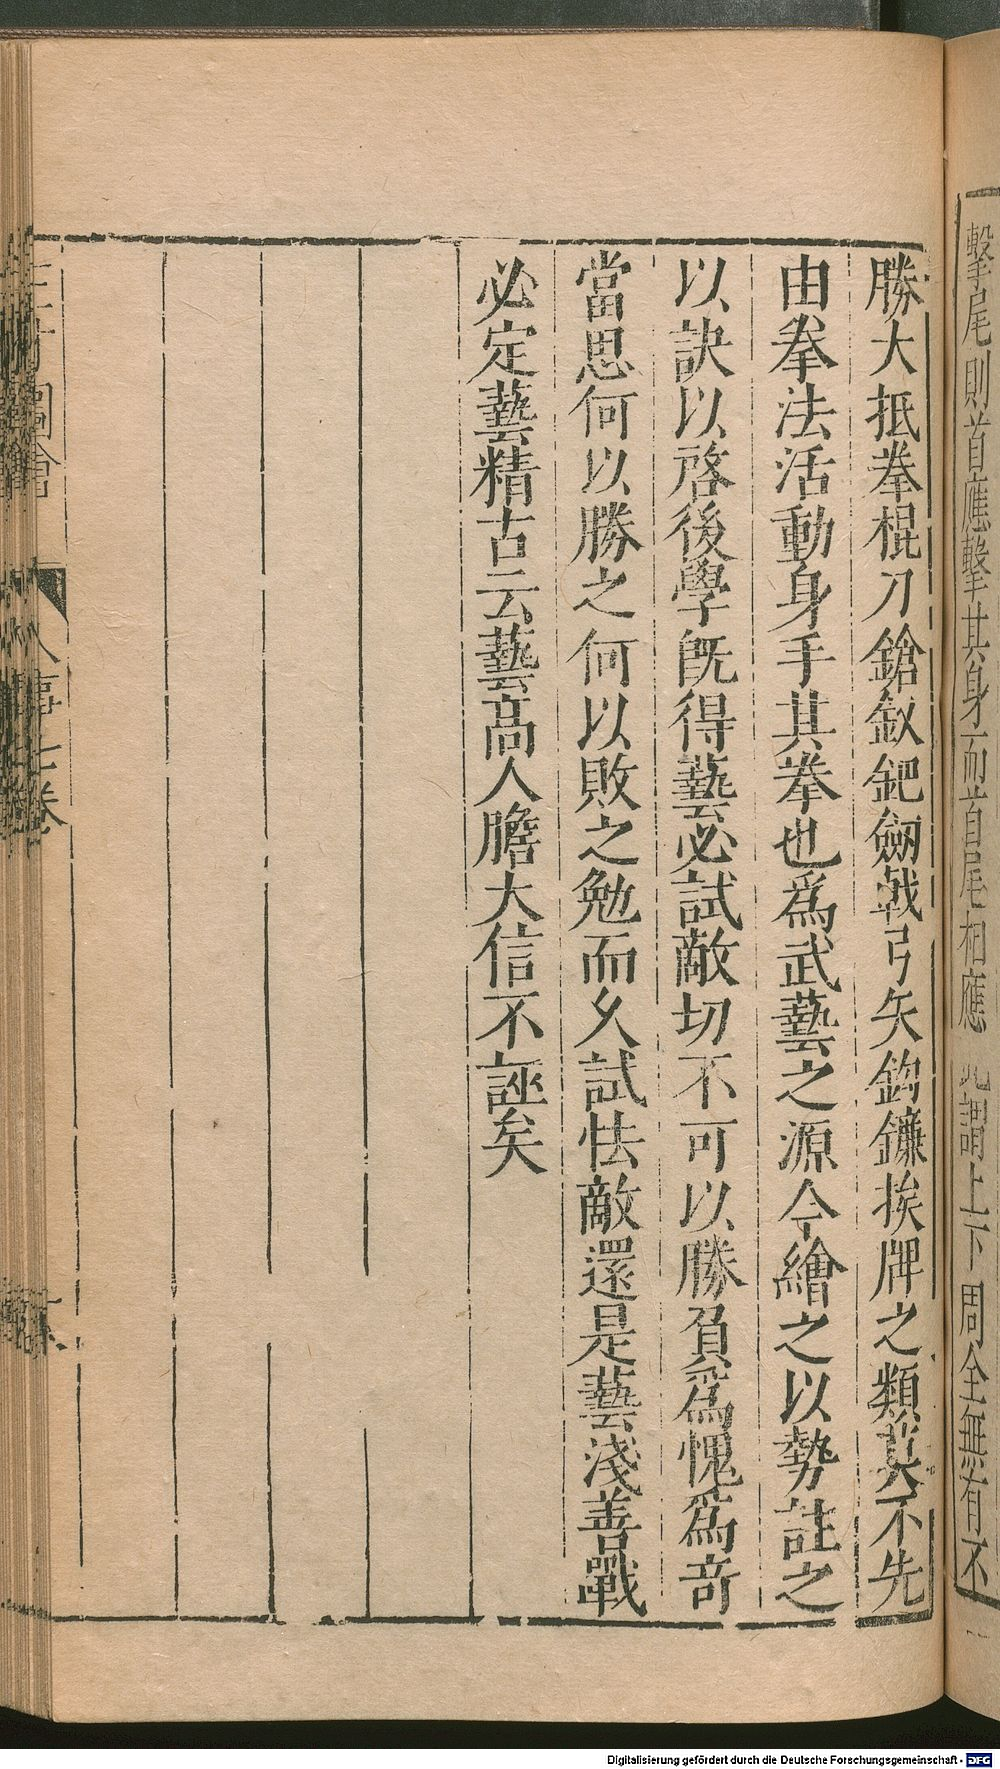 擊尾則首應擊其身而首尾相應 謂上下周全無有不
勝大抵拳棍刀鎗釵鈀劒戟弓矢鈎鐮挨牌之類莫不先
由拳法活動身手其拳也爲武藝之源令繪之以勢註之
以訣以啓後學旣得藝必試敵切不可以勝負爲愧爲竒
當思何以勝之何以敗之勉而久試怯敵還是藝淺善戰
必定藝精古云藝高人膽大信不誣矣
圖會
人事七卷
Digitalisierung gefördert durch die Deutsche Forschungsgemeinschaft - DFG